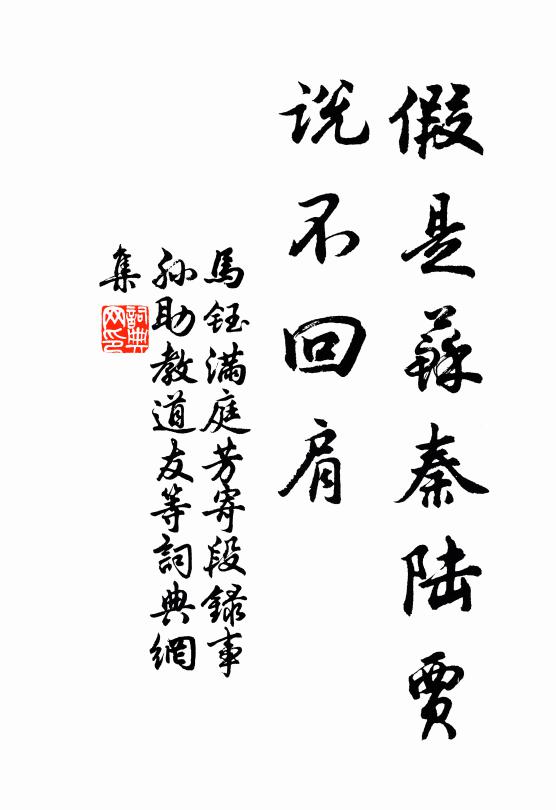 假是蘇秦陆賈
说不回肩
馬鈺满庭芳寄段録事
孙助教道友等詞典網
集
詞典
网印